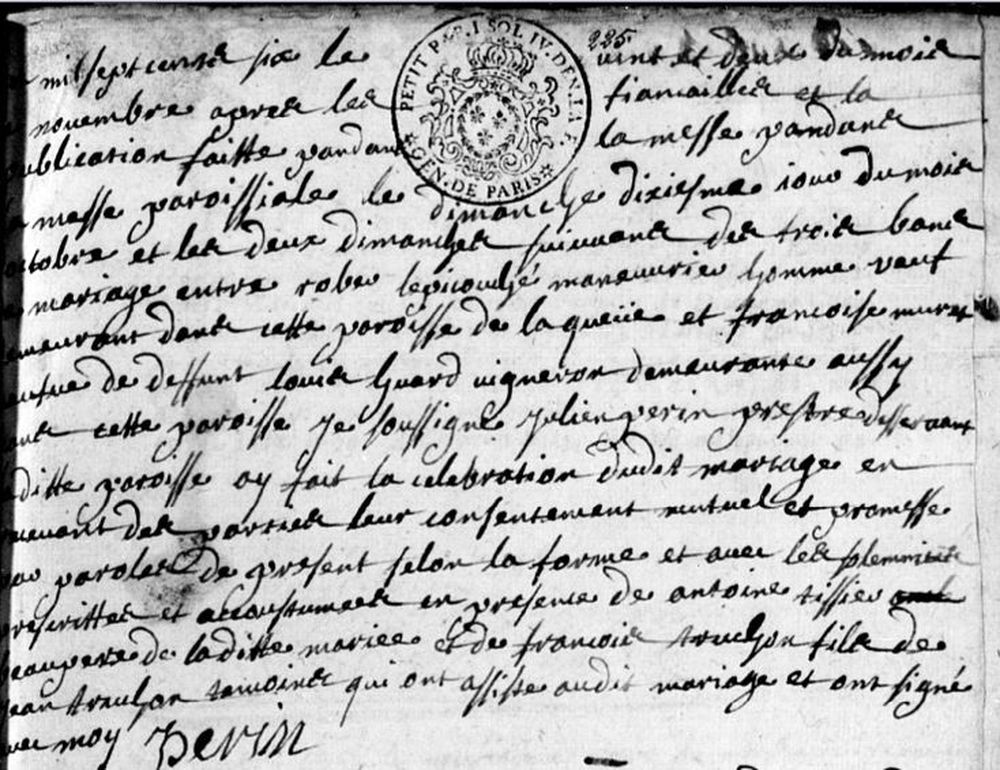 mil sept cents six le vint et deux du mois
novembre apres les fiancailles et la
publication faitte pandant la messe pandant
messe paroissiale le dimanche dixiesme iour du mois
octobre et les deux dimanches suiuants des trois bancs
mariage entre robe lepicouché maneuurier homme veuf
demeurant dans cette paroisse de la queüe et francoise muret
veufue de deffunt louis huard uigneron demeurante aussy
dans cette paroisse Je soussigné Julien perin prestre desseruant
laditte paroisse ay fait la celebration dudit mariage en
receuant des parties leur consentement mutuel et promesse
par paroles de present selon la forme et auec les solemnites
prescrittes et accoustumees en presence de antoine tissier
beaupere de laditte mariee et de francois truchon fils de
jean truchon temoins qui ont assiste audit mariage et ont signé
auec moy Perin
PETIT PAP. 1 SOL IV. DEN. LA F.
GEN. DE PARIS
225